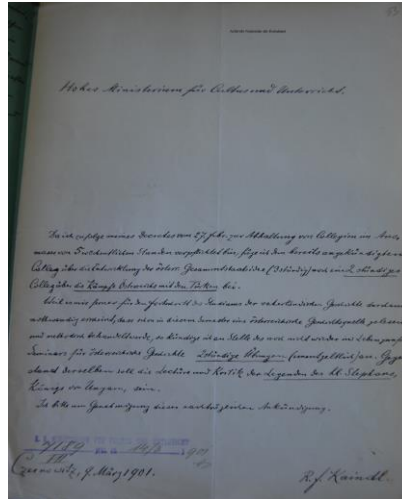 Hohes Ministerium für Cultus und Unterricht.
Da ich zufolge meines Decretes vom 27. Febr. zur Abhaltung von Collegien im Aus-
masse von wöchentlichen Stunden verpflichtet bin, füge ich dem bereits angekündigten
Colleg über die Entwicklung des österr. Gesammtstaates (3stündig) noch ein 2 stündiges
Colleg über die Kämpfe Österreichs mit den Türken bei.
für den Fortschritt des Studiums der vaterländischen Geschichte
notwendig in diesem Semester eine österreichische Geschichtsquelle gelesen
und behandelt werde, so kündige ich an Stelle des
Seminars für österreichische Geschichte 2stündige Übungen (unentgeltlich) an. Gegen-
stand derselben soll die Lectüre und Kritik der Legenden des hl. Stephans,
Königs von Ungarn, sein.
Ich bitte um Genehmigung dieser nachträglichen Ankündigung.
7189
14/3 1901
Czernowitz, 9. März 1901.
R. F. Kaindl